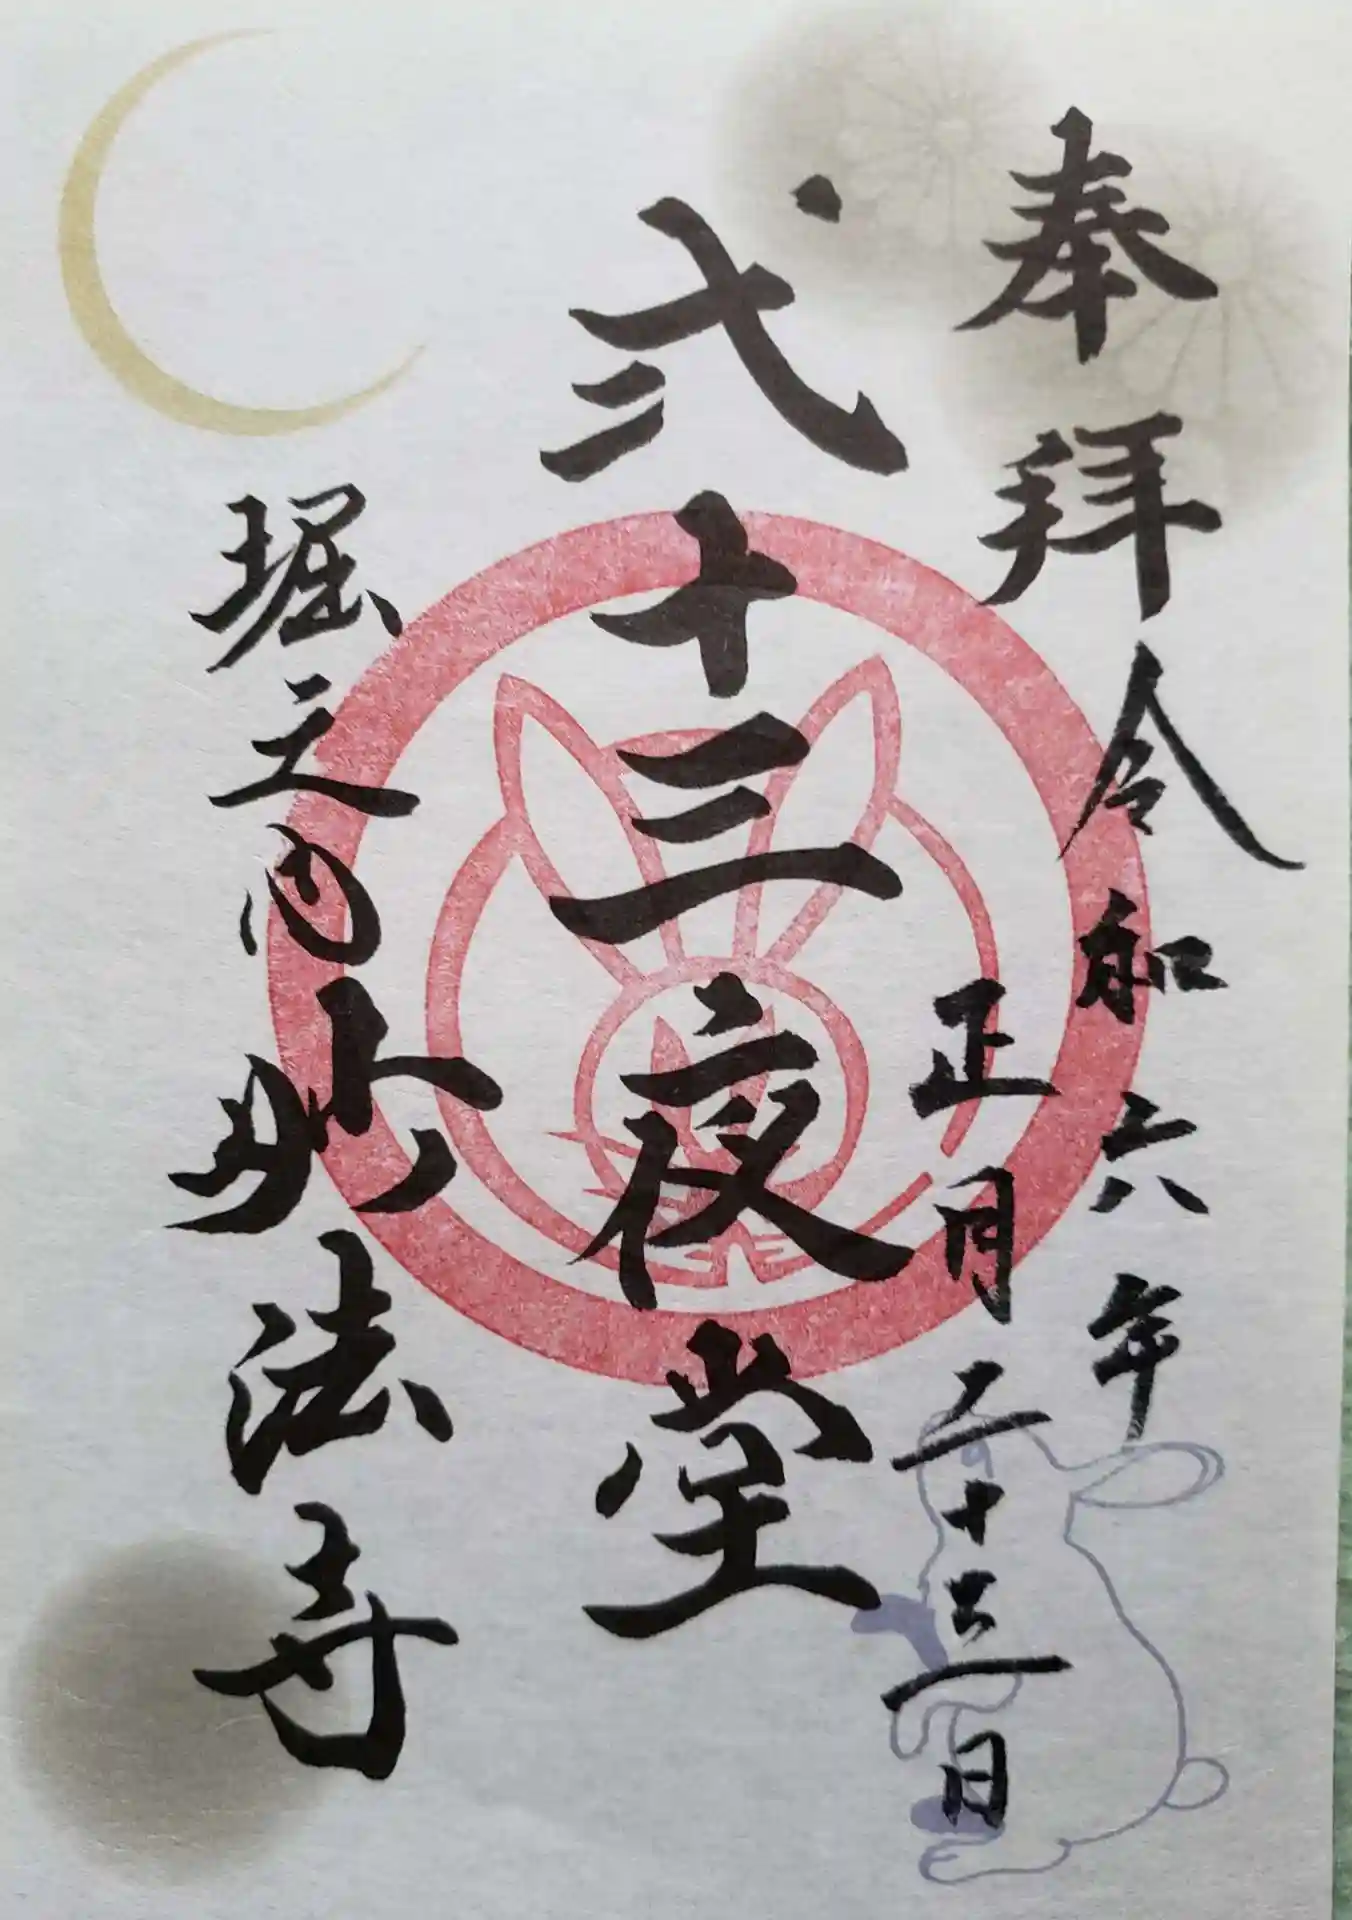 奉拝
令和六年
正月二十三日
弐十三夜堂
堀之内
妙法寺